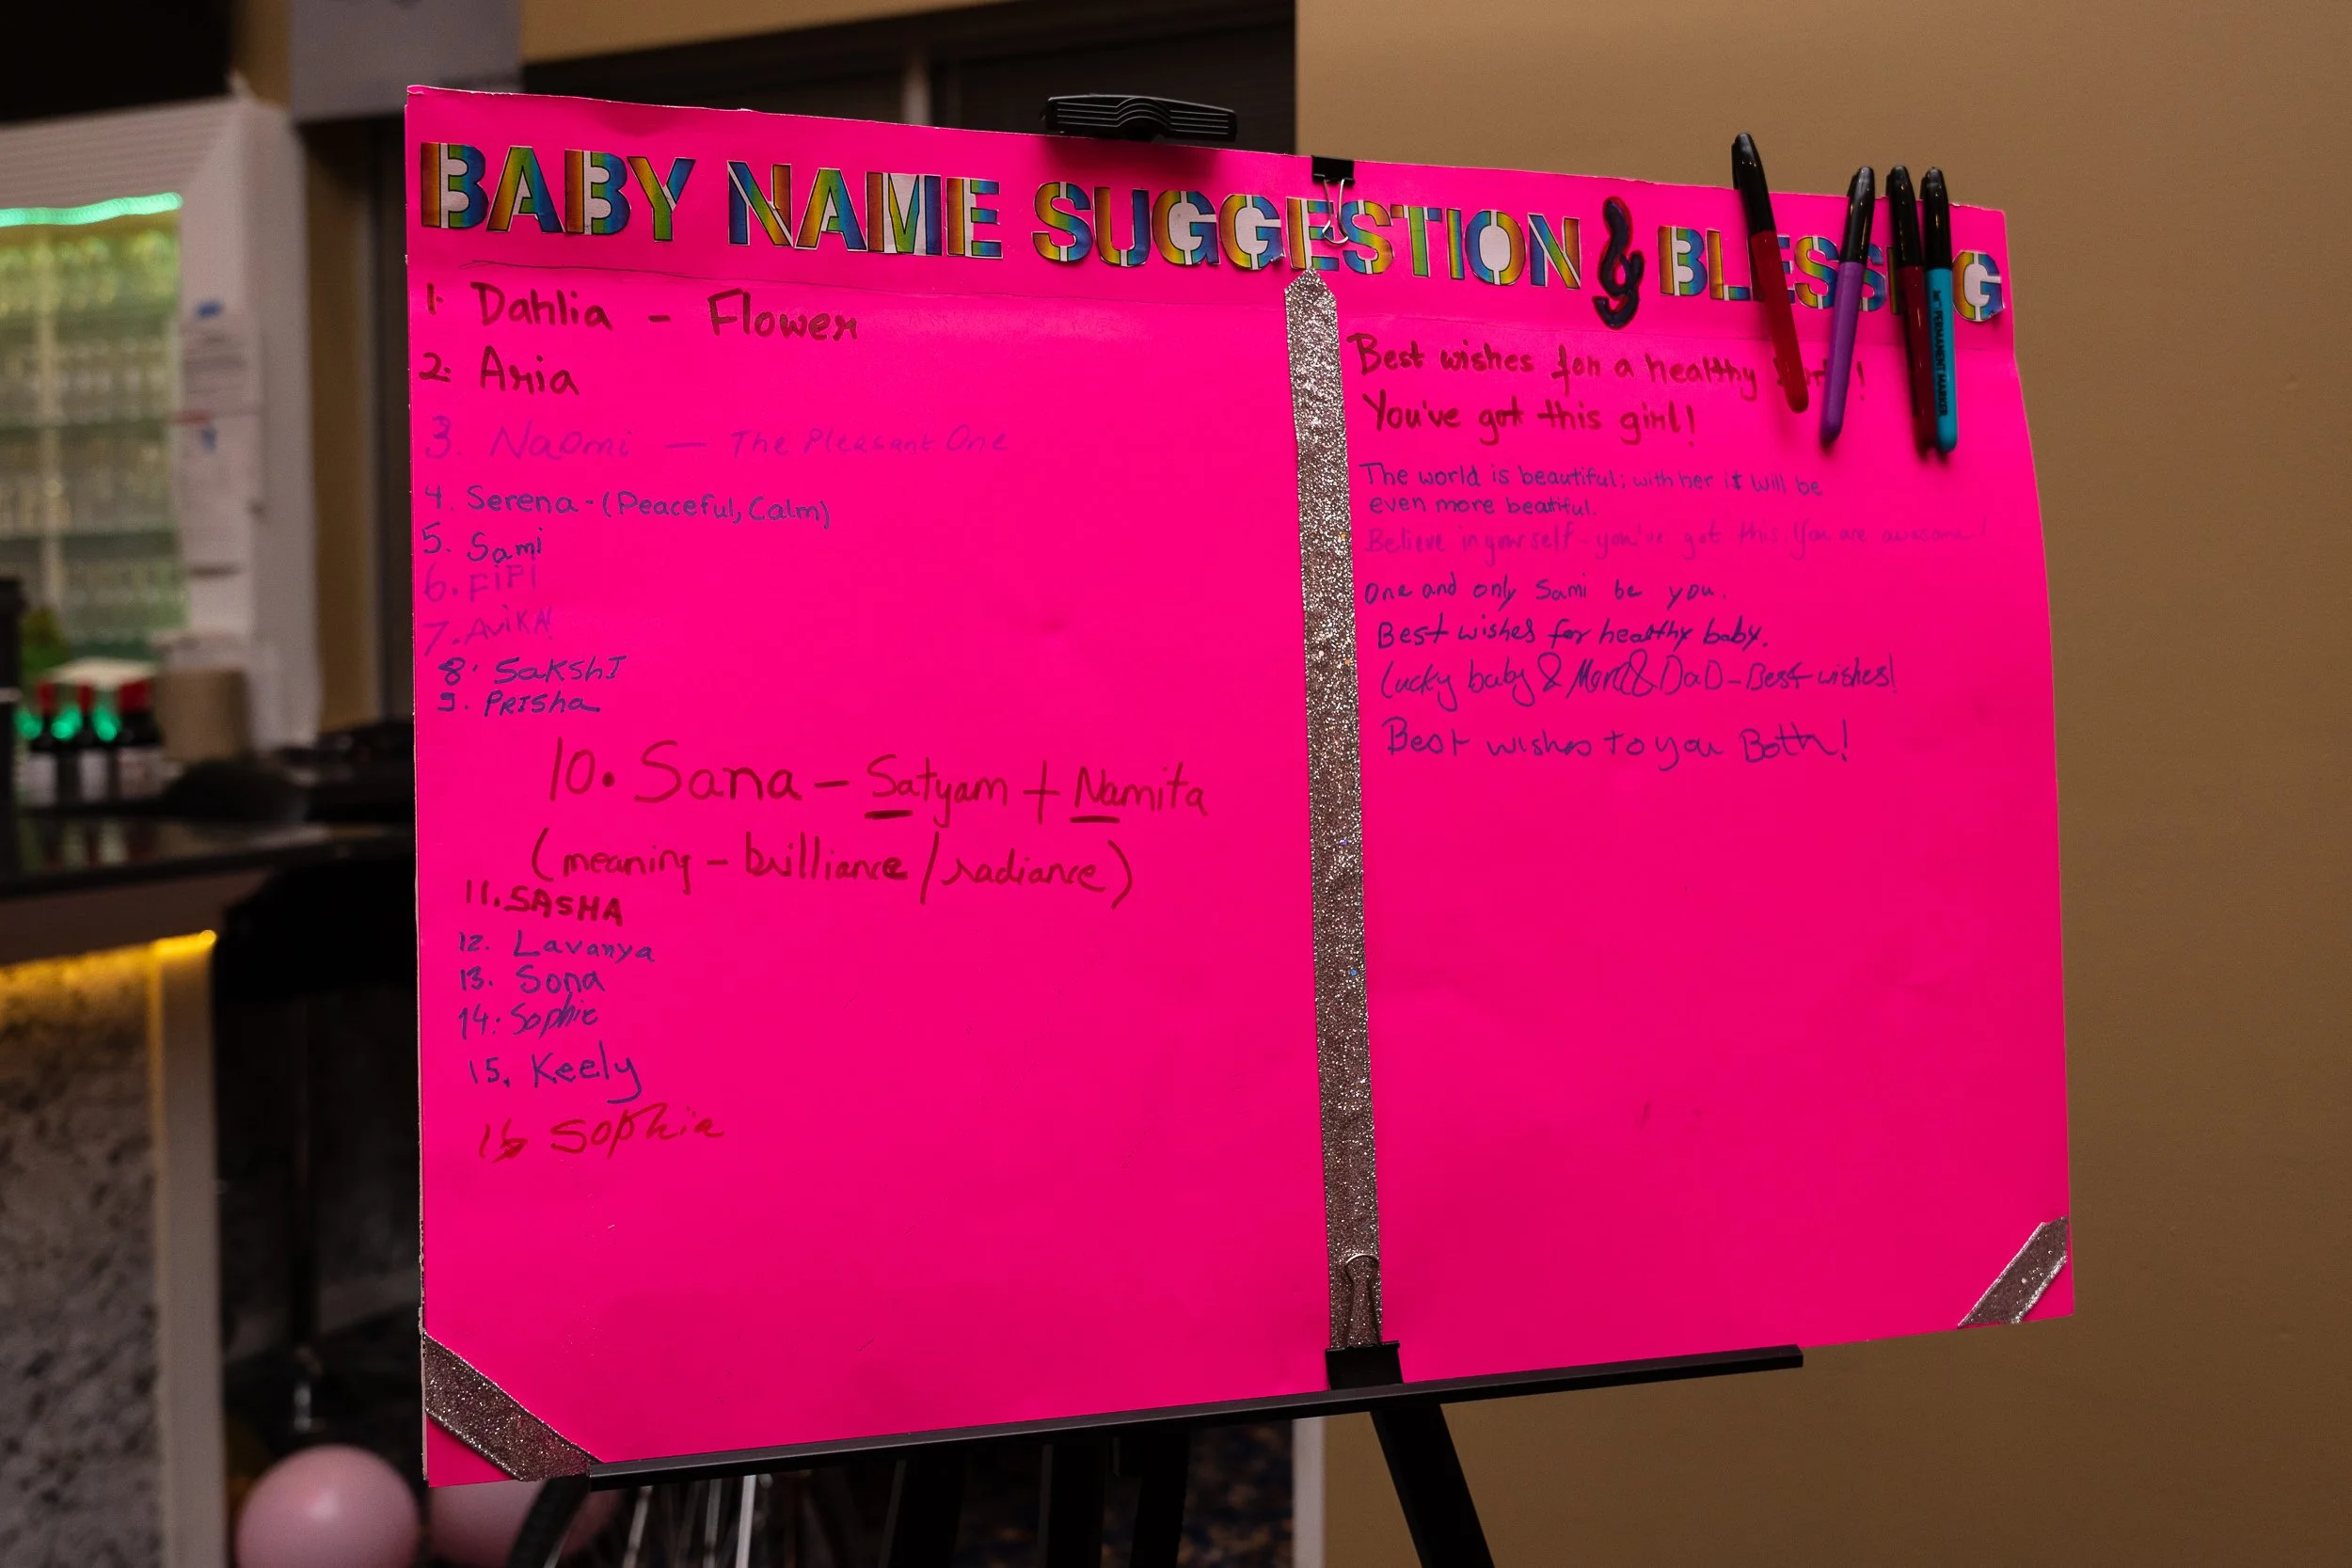 BABY NAME SUGGESTION & BLESSING
1. Dahlia - Flower
2. Aria
3. Naomi — The Pleasant One
4. Serena - (Peaceful, Calm)
5. Sami
6. FiFi
7. AviKA
8. SakshI
9. PRIsha
10. Sana - Satyam + Namita
(meaning - brilliance / radiance)
11. SASHA
12. Lavanya
13. Sona
14. Sophie
15. Keely
16 Sophia
Best wishes for a healthy !
You've got this girl!
The world is beautiful; with her it will be
even more beatiful.
Believe in yourself - you've got this. You are awesome!
One and only Sami be you.
Best wishes for healthy baby.
Lucky baby & Mom & DaD - Best wishes!
Best wishes to you Both!
PERMANENT MARKER